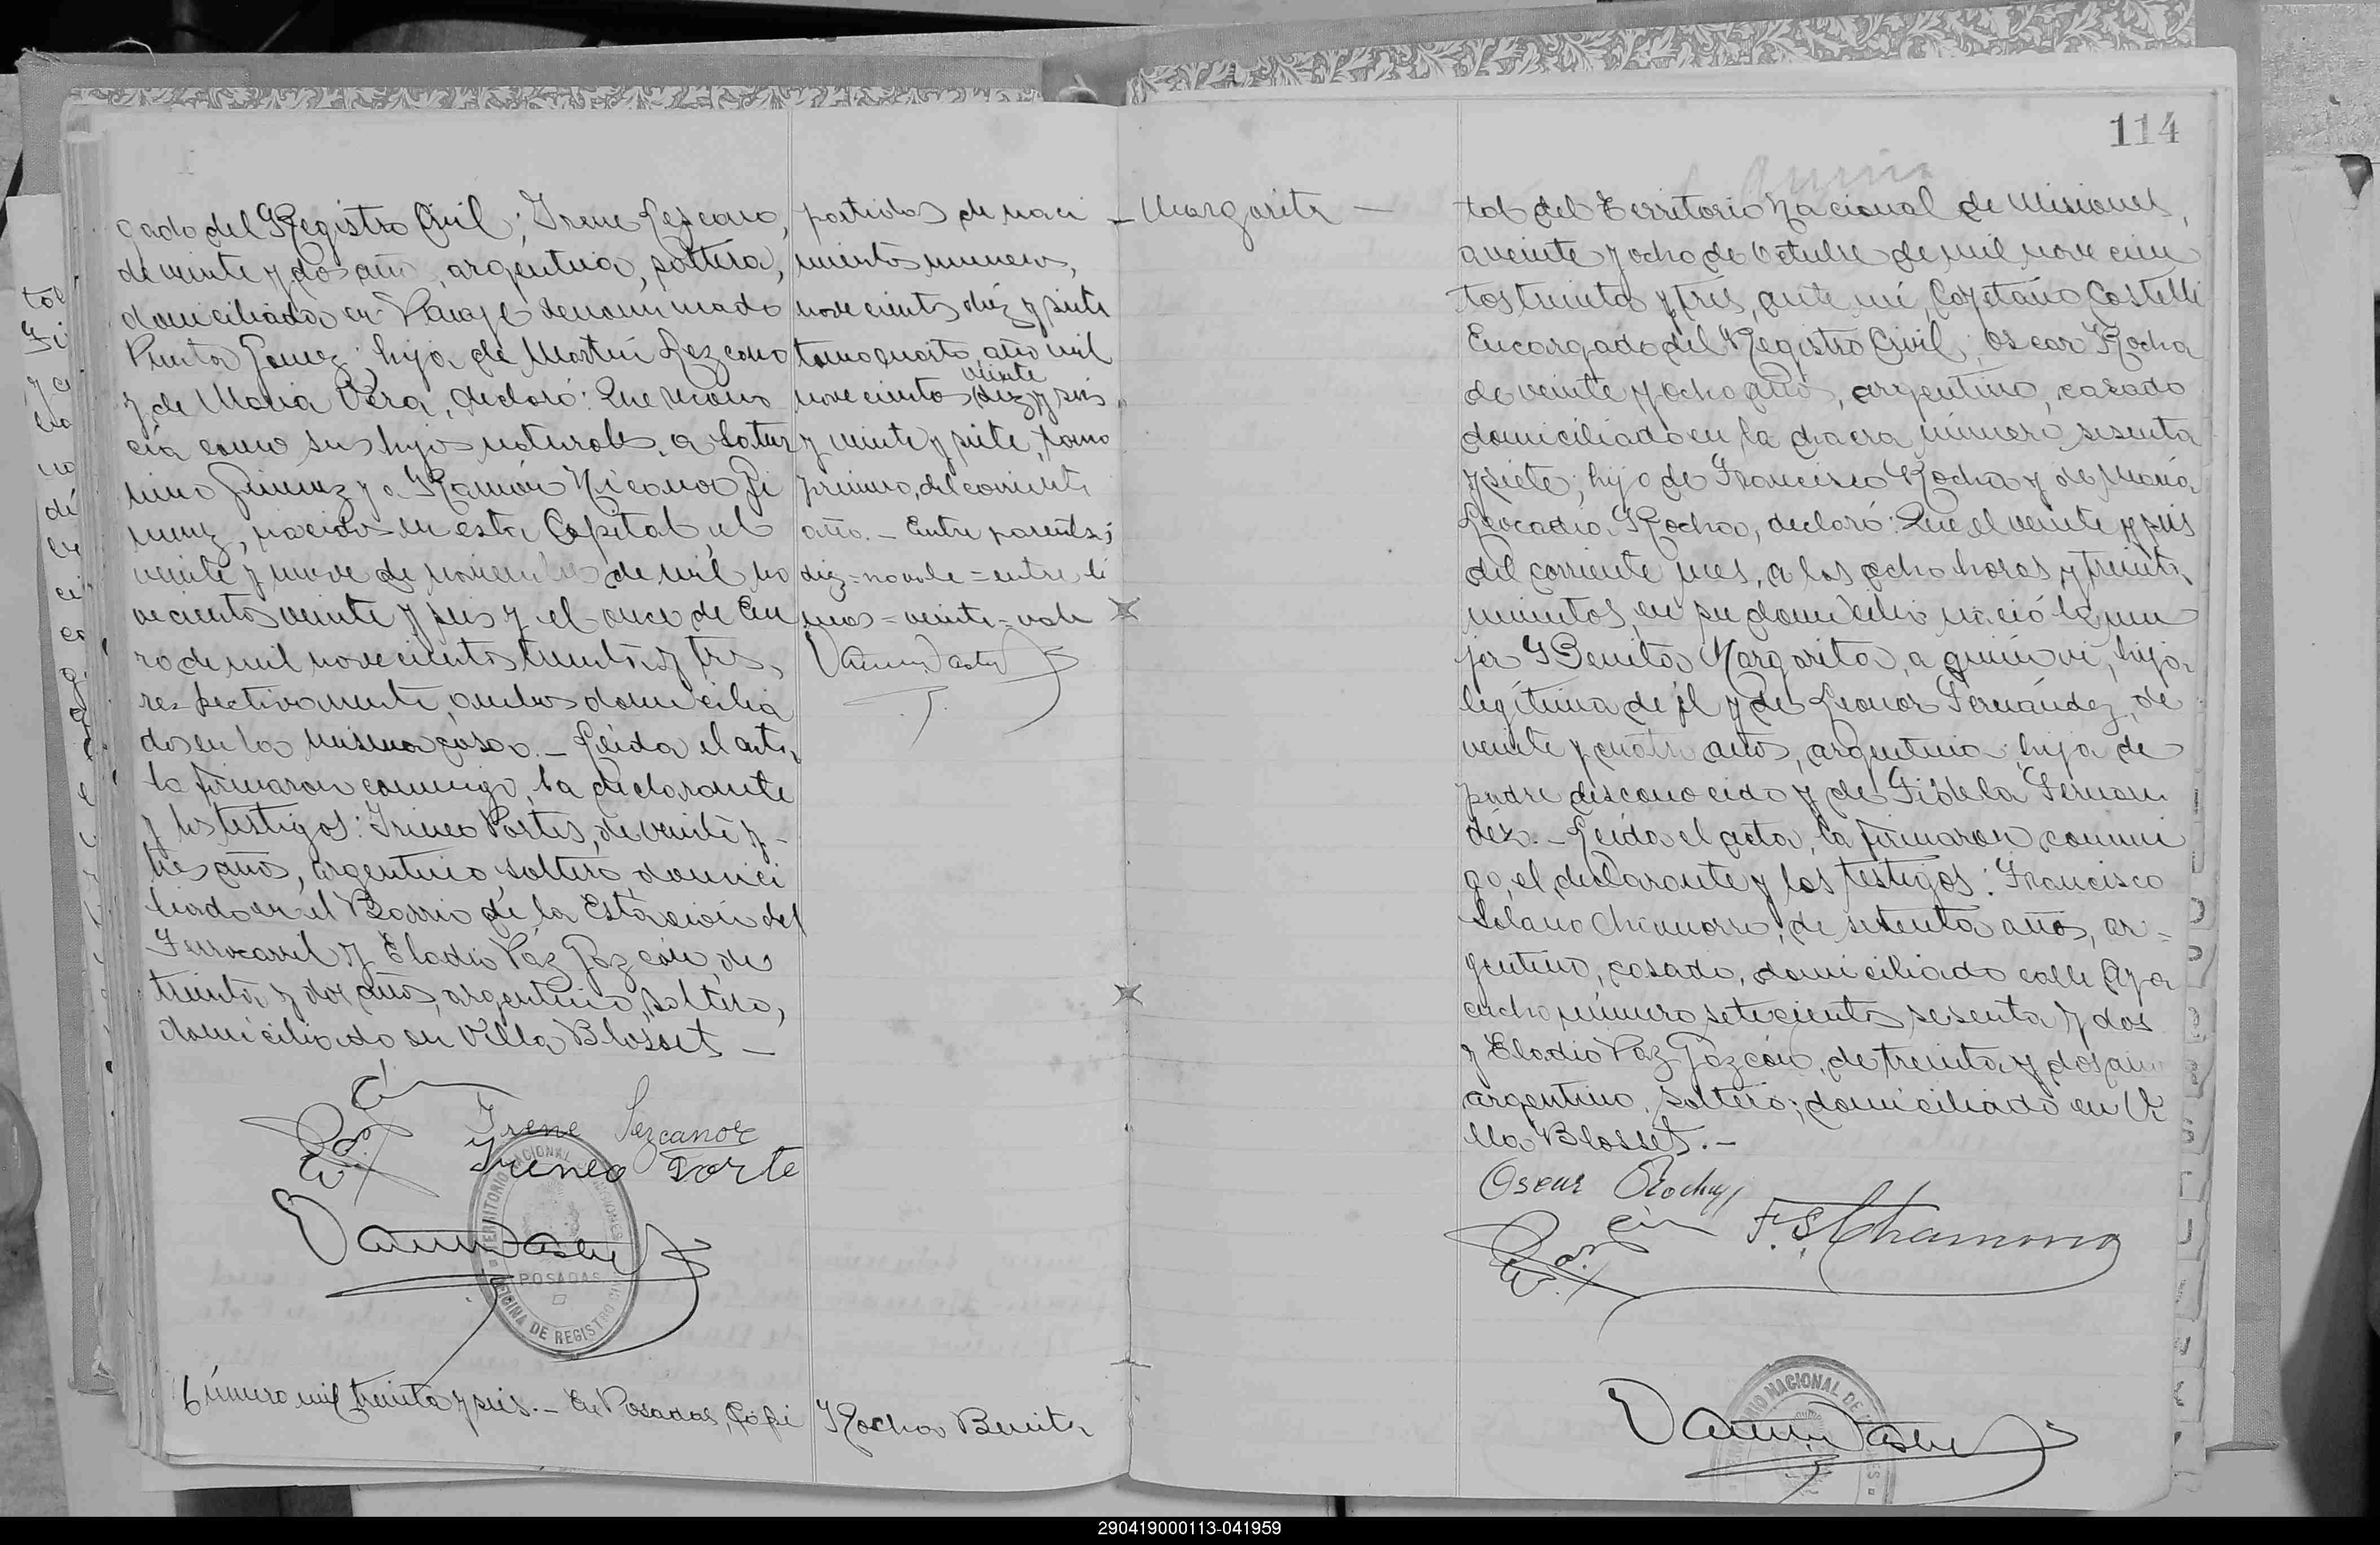 gado del Registro Civil; Irene Lescano,
de veinte y dos años, argentina, soltera,
domiciliada en Paraje denominado
Punta Gomez; hija de Martín Lezcano
y de María Vera, declaró: Que recono
cía como sus hijos naturales a Satur
nino Jimenez y a Ramón Nicanor Ji
menez, nacidos en esta Capital, el
veinte y nueve de noviembre de mil no
vecientos veinte y seis y el once de Ene
ro de mil novecientos treinta y tres,
respectivamente, ambos domicilia
dos en la misma casa.- Leída el acta,
la firmaron conmigo, la declarante
y los testigos: Irineo Portes, de veinte y -
tres años, argentino, soltero, domici
liado en el Barrio de la Estación del
Ferrocarril y Eladio Paz Gazcón, de
treinta y dos años, argentino, soltero,
domiciliado en Villa Blosset -
Irene Lezcanoz
Irineo Porte
TERRITORIO NACIONAL DE MISIONES
POSADAS
OFICINA DE REGISTRO CIVIL
Número mil treinta y seis.- En Posadas, Capi
partidas de naci
miento números,
novecientos diez y siete
tomo cuarto, año mil
veinte
novecientos (diez) y seis
y veinte y siete, tomo
primero, del corriente
año.- Entre parentesis
diez = no vale = entre li
neas = veinte = vale
Rocha Benita
- Margarita -
114
tal del Territorio Nacional de Misiones,
a veinte y ocho de Octubre de mil novecien
tos treinta y tres, ante mi, Cayetano Castelli
Encargado del Registro Civil; Oscar Rocha
de veinte y ocho años, argentino, casado
domiciliado en la chacra número sesenta
y siete; hijo de Francisco Rocha y de María
Leocadia Rocha, declaró: Que el veinte y seis
del corriente mes, a las ocho horas y treinta
minutos, en su domicilio nació la mu
jer Benita Margarita, a quien ví, hija
legítima de él y de Leonor Fernández, de
veinte y cuatro años, argentina, hija de
padre desconocido y de Fidela Fernan
déz.- Leída el acta, la firmaron conmi
go, el declarante y los testigos: Francisco
Solano Chamorro, de setenta años, ar=
gentino, casado, domiciliado calle Aya
cucho número setecientos sesenta y dos
y Eladio Paz Gazcón, de treinta y dos años
argentino, soltero; domiciliado en Vi
lla Blosset.-
Oscar Rocha
F. S. Chamorro
NACIONAL DE
290419000113-041959